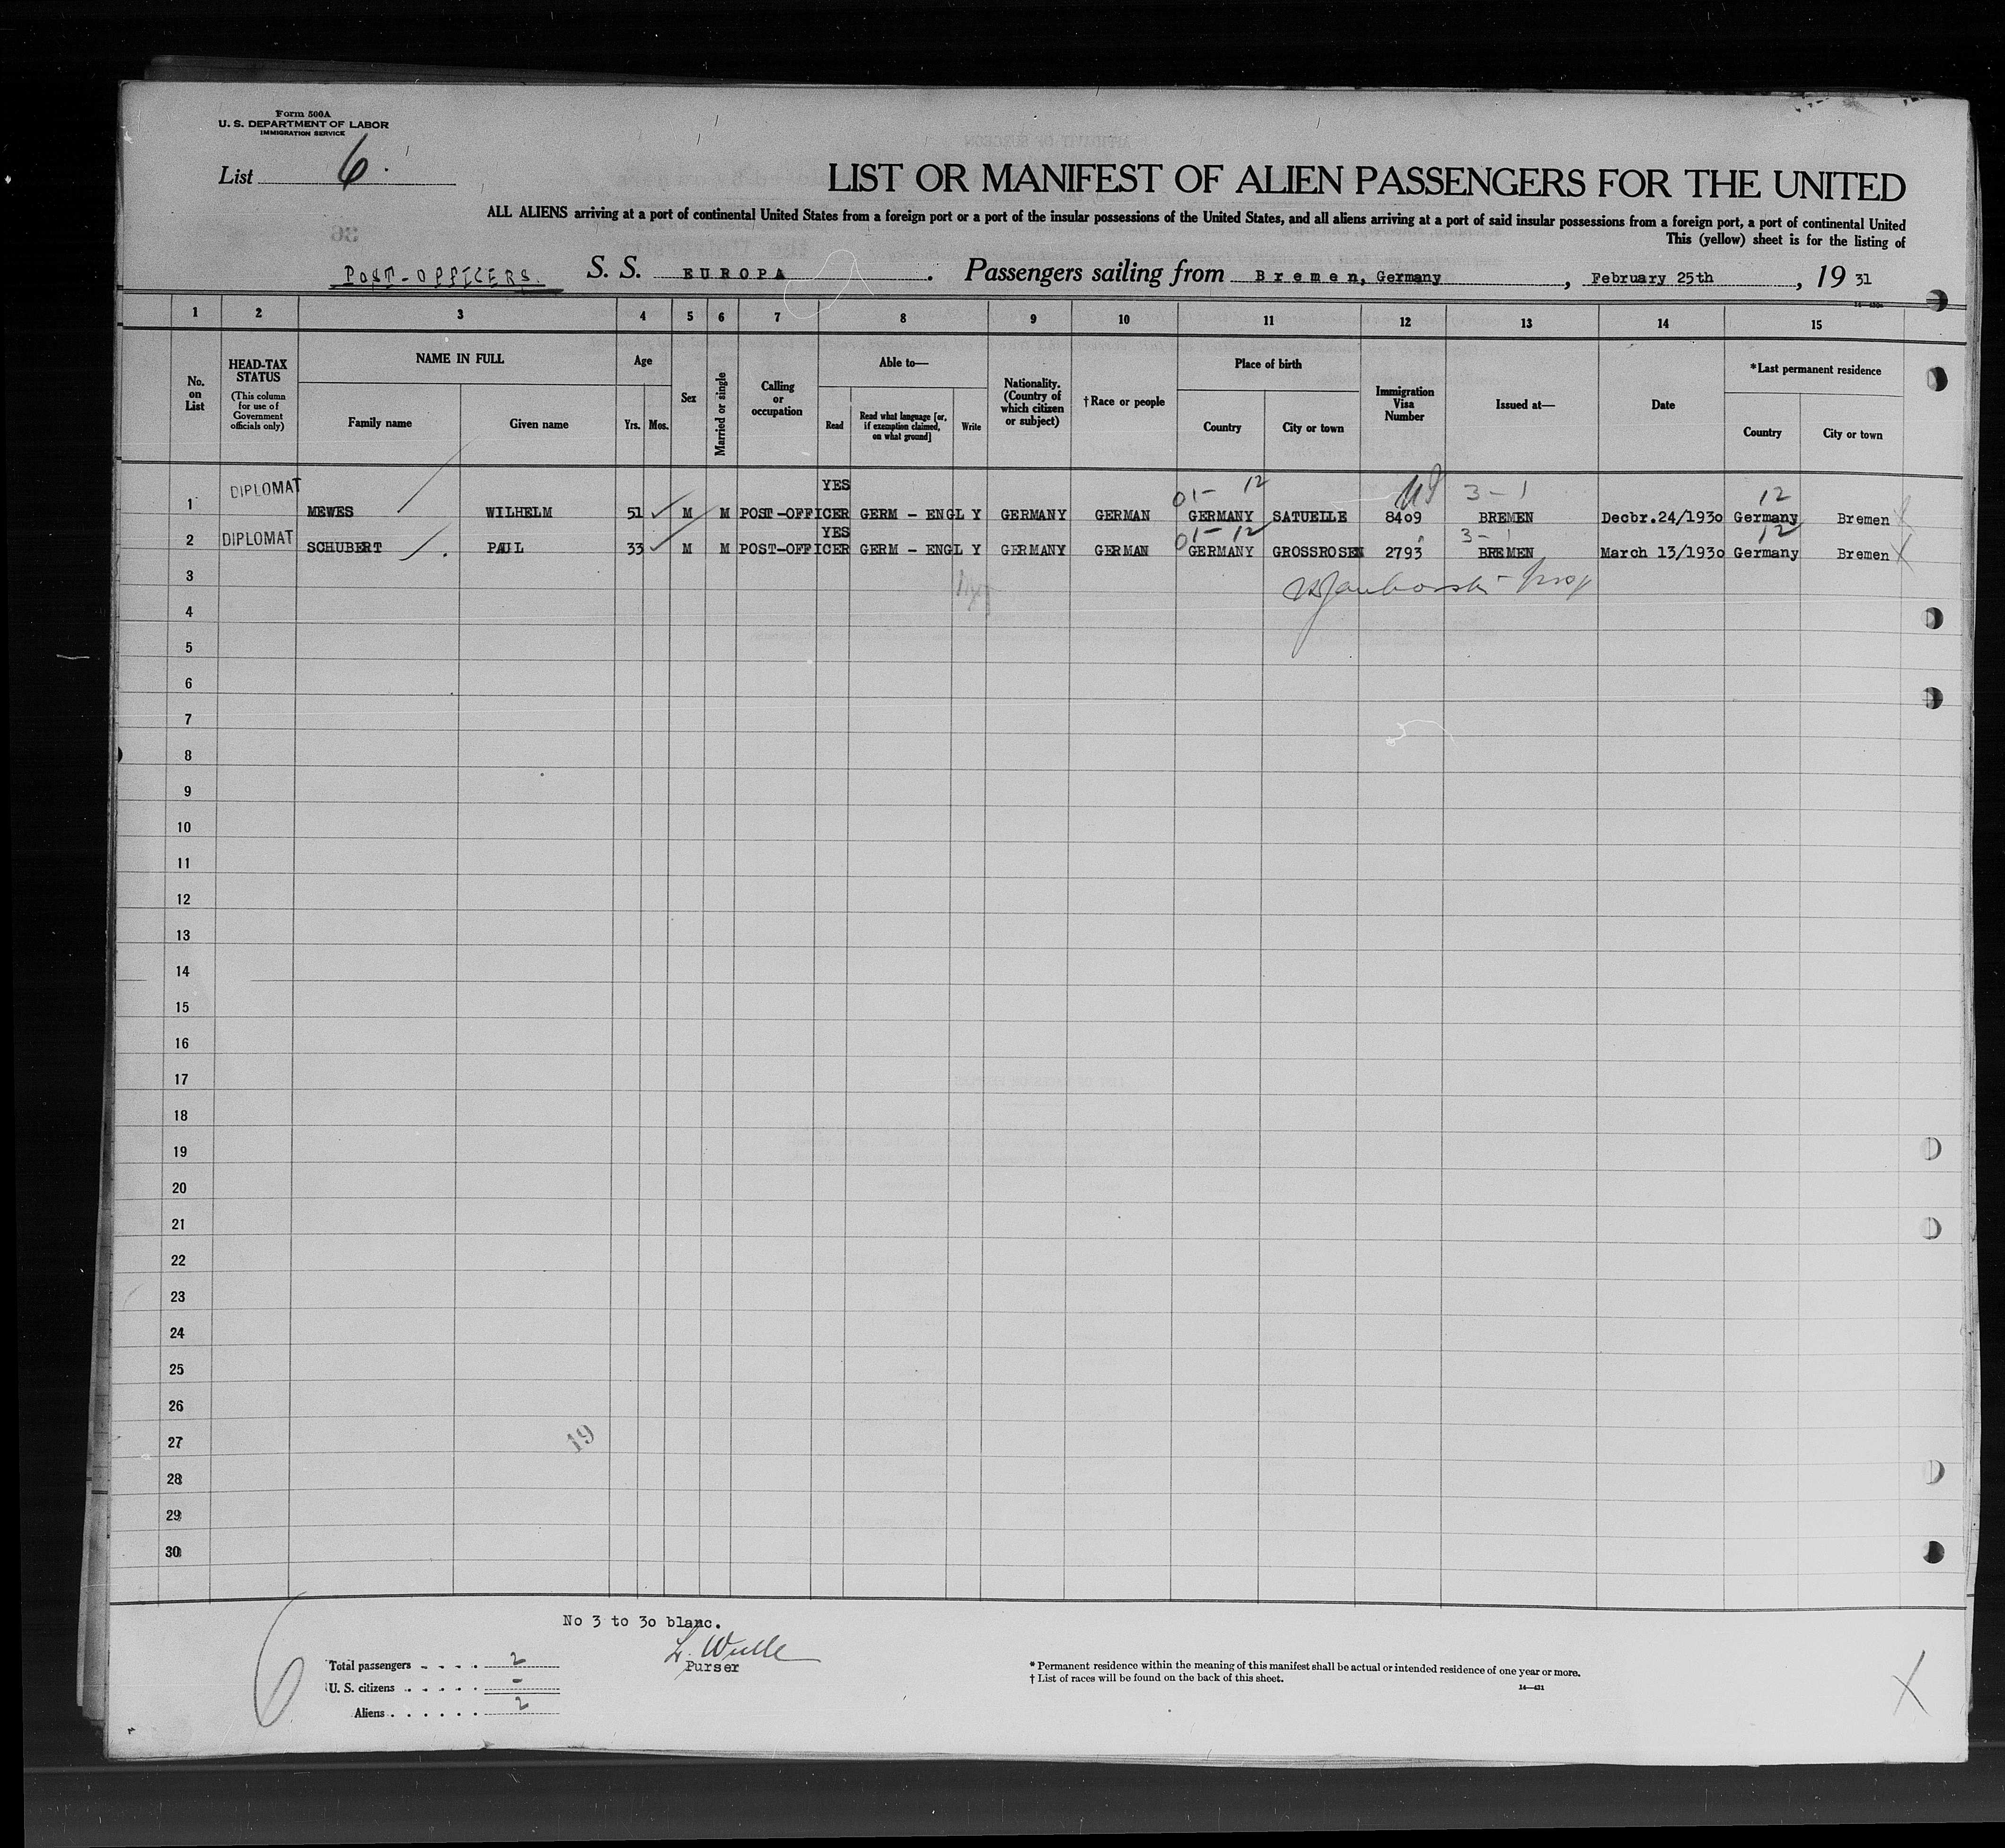 Form 500A
U. S. DEPARTMENT OF LABOR
IMMIGRATION SERVICE
List 6.
LIST OR MANIFEST OF ALIEN PASSENGERS FOR THE UNITED
ALL ALIENS arriving at a port of continental United States from a foreign port or a port of the insular possessions of the United States, and all aliens arriving at a port of said insular possessions from a foreign port, a port of continental United
This (yellow) sheet is for the listing of
36
POST-OFFICERS. S. S. EUROPA. Passengers sailing from Bremen, Germany, February 25th, 1931
1 2 3 4 5 6 7 8 9 10 11 12 13 14 15
No. on List
HEAD-TAX STATUS
(This column for use of Government officials only)
NAME IN FULL
Family name Given name
Age
Yrs. Mos.
Sex
Married or single
Calling or occupation
Able to—
Read
Read what language [or, if exemption claimed, on what ground]
Write
Nationality. (Country of which citizen or subject)
†Race or people
Place of birth
Country City or town
Immigration Visa Number
Issued at—
Date
*Last permanent residence
Country City or town
YES 01- 12 3-1 12
1 DIPLOMAT MEWES WILHELM 51 M M POST-OFFICER GERM - ENGL Y GERMANY GERMAN GERMANY SATUELLE 8409 BREMEN Decbr.24/1930 Germany Bremen
YES 01- 12 3-1 12
2 DIPLOMAT SCHUBERT PAUL 33 M M POST-OFFICER GERM - ENGL Y GERMANY GERMAN GERMANY GROSSROSEN 2793 BREMEN March 13/1930 Germany Bremen X
3
4
5
6
7
8
9
10
11
12
13
14
15
16
17
18
19
20
21
22
23
24
25
26
27
19
28
29
30
No 3 to 30 blanc.
L. Wulle
Purser
6
Total passengers 2
U. S. citizens -
Aliens 2
* Permanent residence within the meaning of this manifest shall be actual or intended residence of one year or more.
† List of races will be found on the back of this sheet.
14—431
X